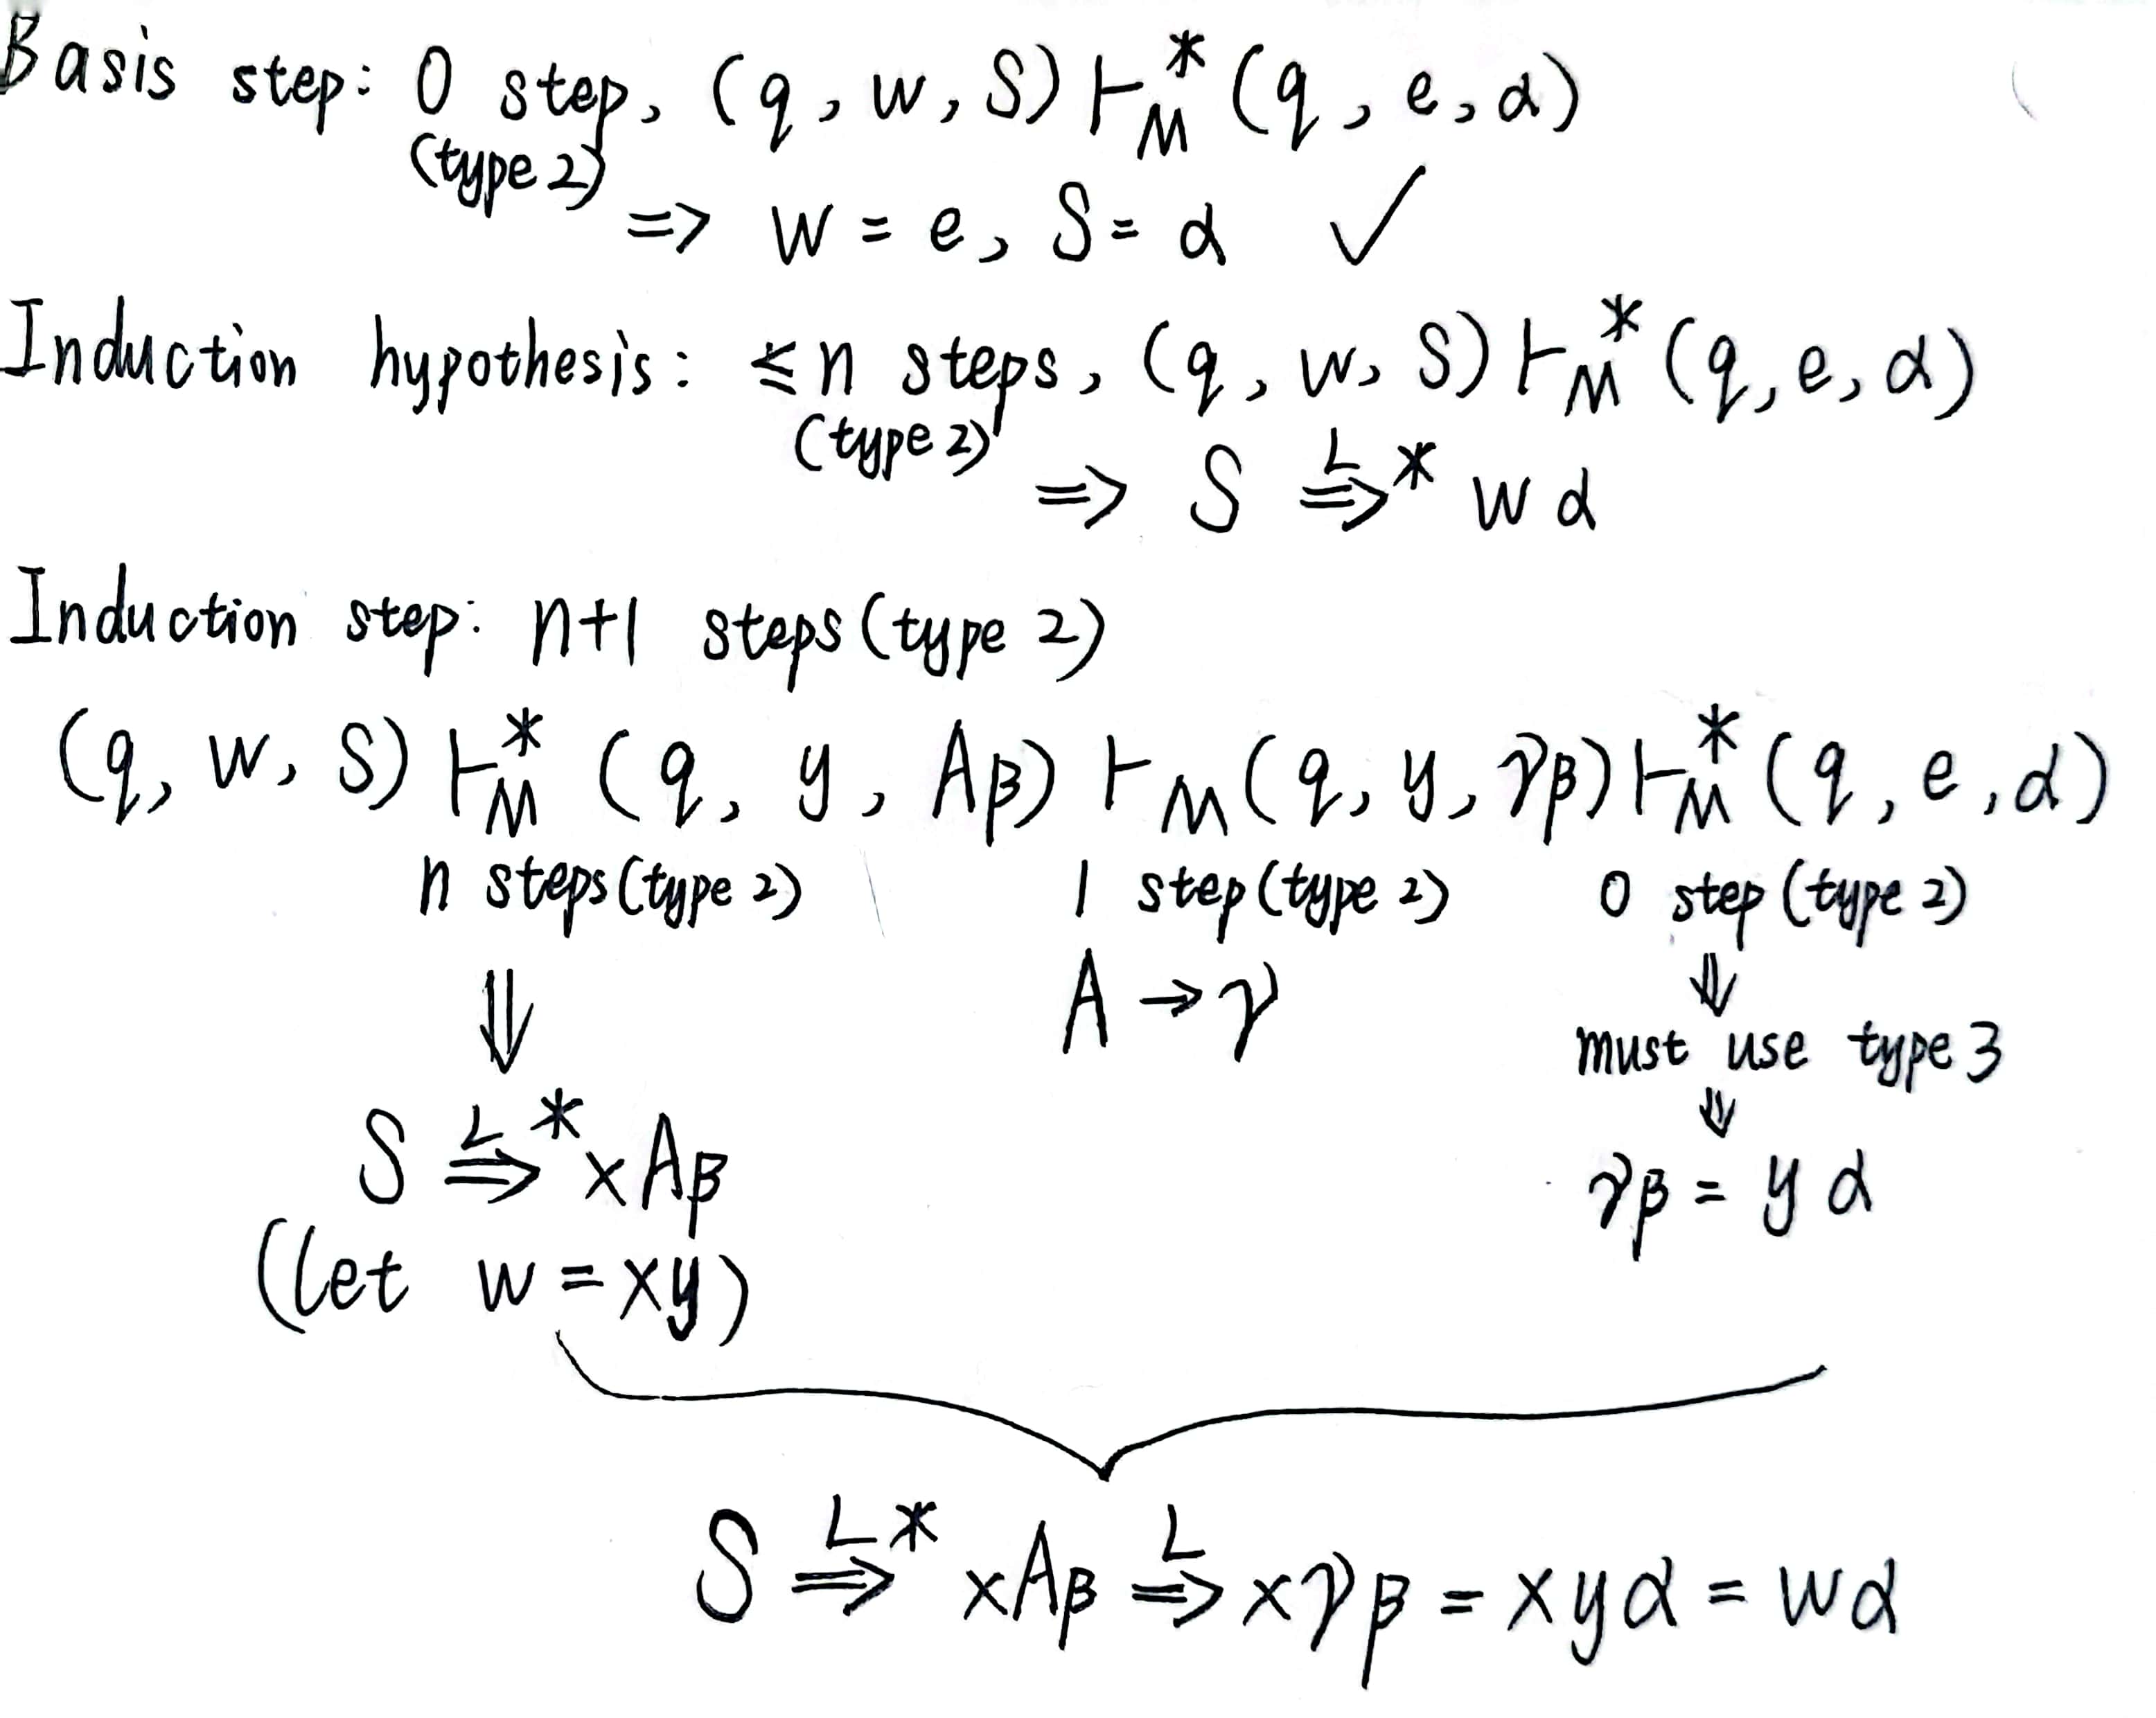 Basis step: 0 step, (q, w, S) ⊢M* (q, e, α)
(type 2)
=> w = e, S = α ✓
Induction hypothesis: ≤n steps, (q, w, S) ⊢M* (q, e, α)
(type 2)
=> S L=>* wα
Induction step: n+1 steps (type 2)
(q, w, S) ⊢M* (q, y, Aβ) ⊢M (q, y, γβ) ⊢M* (q, e, α)
n steps (type 2) 1 step (type 2) 0 step (type 2)
⇓ A → γ ⇓
must use type 3
⇓
S L=>* xAβ γβ = yα
(let w = xy)
S L=>* xAβ L=> xγβ = xyα = wα